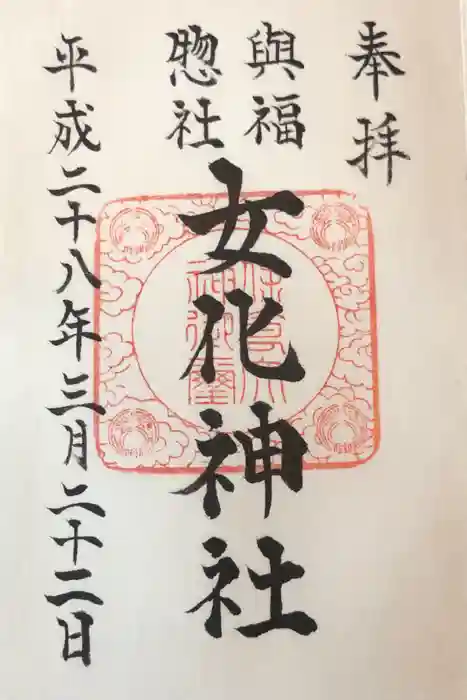 奉拝
與福
惣社
女化神社
平成二十八年三月二十二日